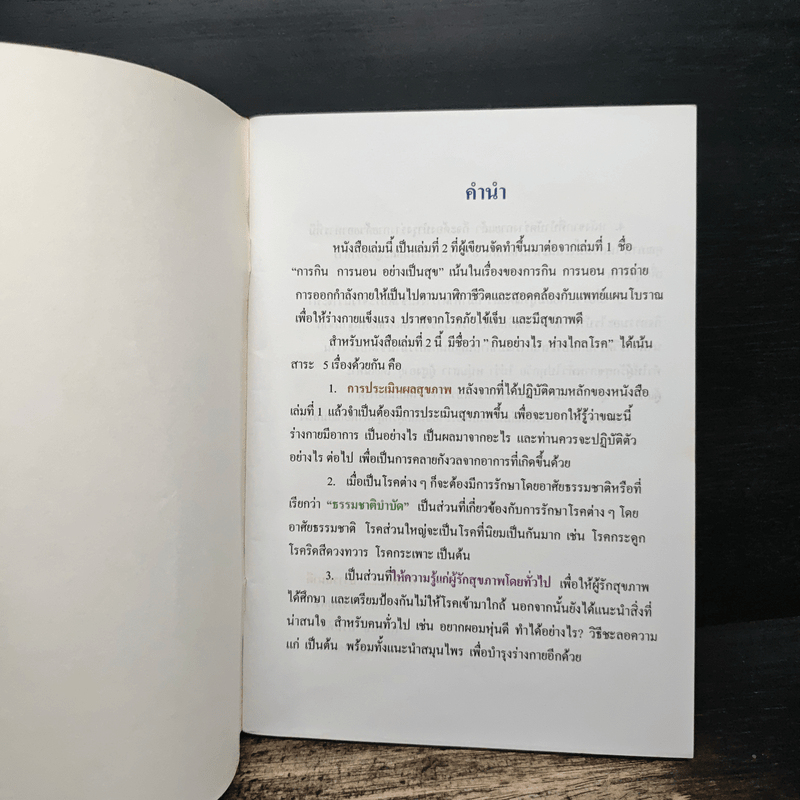 คำนำ
หนังสือเล่มนี้ เป็นเล่มที่ 2 ที่ผู้เขียนจัดทำขึ้นมาต่อจากเล่มที่ 1 ชื่อ
"การกิน การนอน อย่างเป็นสุข" เน้นในเรื่องของการกิน การนอน การถ่าย
การออกกำลังกายให้เป็นไปตามนาฬิกาชีวิตและสอดคล้องกับแพทย์แผนโบราณ
เพื่อให้ร่างกายแข็งแรง ปราศจากโรคภัยไข้เจ็บ และมีสุขภาพดี
สำหรับหนังสือเล่มที่ 2 นี้ มีชื่อว่า " กินอย่างไร ห่างไกลโรค" ได้เน้น
สาระ 5 เรื่องด้วยกัน คือ
1. การประเมินผลสุขภาพ หลังจากที่ได้ปฏิบัติตามหลักของหนังสือ
เล่มที่ 1 แล้วจำเป็นต้องมีการประเมินสุขภาพขึ้น เพื่อจะบอกให้รู้ว่าขณะนี้
ร่างกายมีอาการ เป็นอย่างไร เป็นผลมาจากอะไร และท่านควรจะปฏิบัติตัว
อย่างไร ต่อไป เพื่อเป็นการคลายกังวลจากอาการที่เกิดขึ้นด้วย
2. เมื่อเป็นโรคต่าง ๆ ก็จะต้องมีการรักษาโดยอาศัยธรรมชาติหรือที่
เรียกว่า "ธรรมชาติบำบัด" เป็นส่วนที่เกี่ยวข้องกับการรักษาโรคต่าง ๆ โดย
อาศัยธรรมชาติ โรคส่วนใหญ่จะเป็นโรคที่นิยมเป็นกันมาก เช่น โรคกระดูก
โรคริดสีดวงทวาร โรคกระเพาะ เป็นต้น
3. เป็นส่วนที่ให้ความรู้แก่ผู้รักสุขภาพโดยทั่วไป เพื่อให้ผู้รักสุขภาพ
ได้ศึกษา และเตรียมป้องกันไม่ให้โรคเข้ามาใกล้ นอกจากนั้นยังได้แนะนำสิ่งที่
น่าสนใจ สำหรับคนทั่วไป เช่น อยากผอมหุ่นดี ทำได้อย่างไร? วิธีชะลอความ
แก่ เป็นต้น พร้อมทั้งแนะนำสมุนไพร เพื่อบำรุงร่างกายอีกด้วย